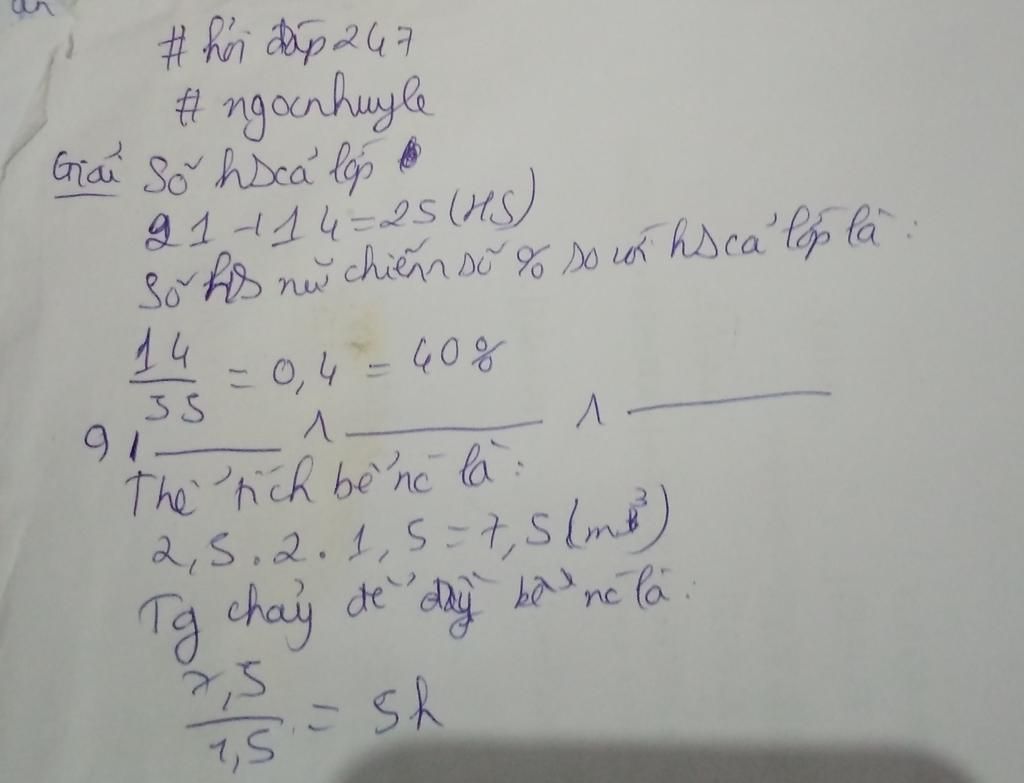 # hỏi đáp 247
# ngocnhuyle
Giải Số hs cả lớp
21 + 14 = 25 (HS)
Số hs nữ chiếm số % so với hs cả lớp là :
14/35 = 0,4 = 40%
91
Thể tích bể nc là :
2,5 . 2 . 1,5 = 7,5 (m³)
Tg chảy để đầy bể nc là :
7,5/1,5 = 5h